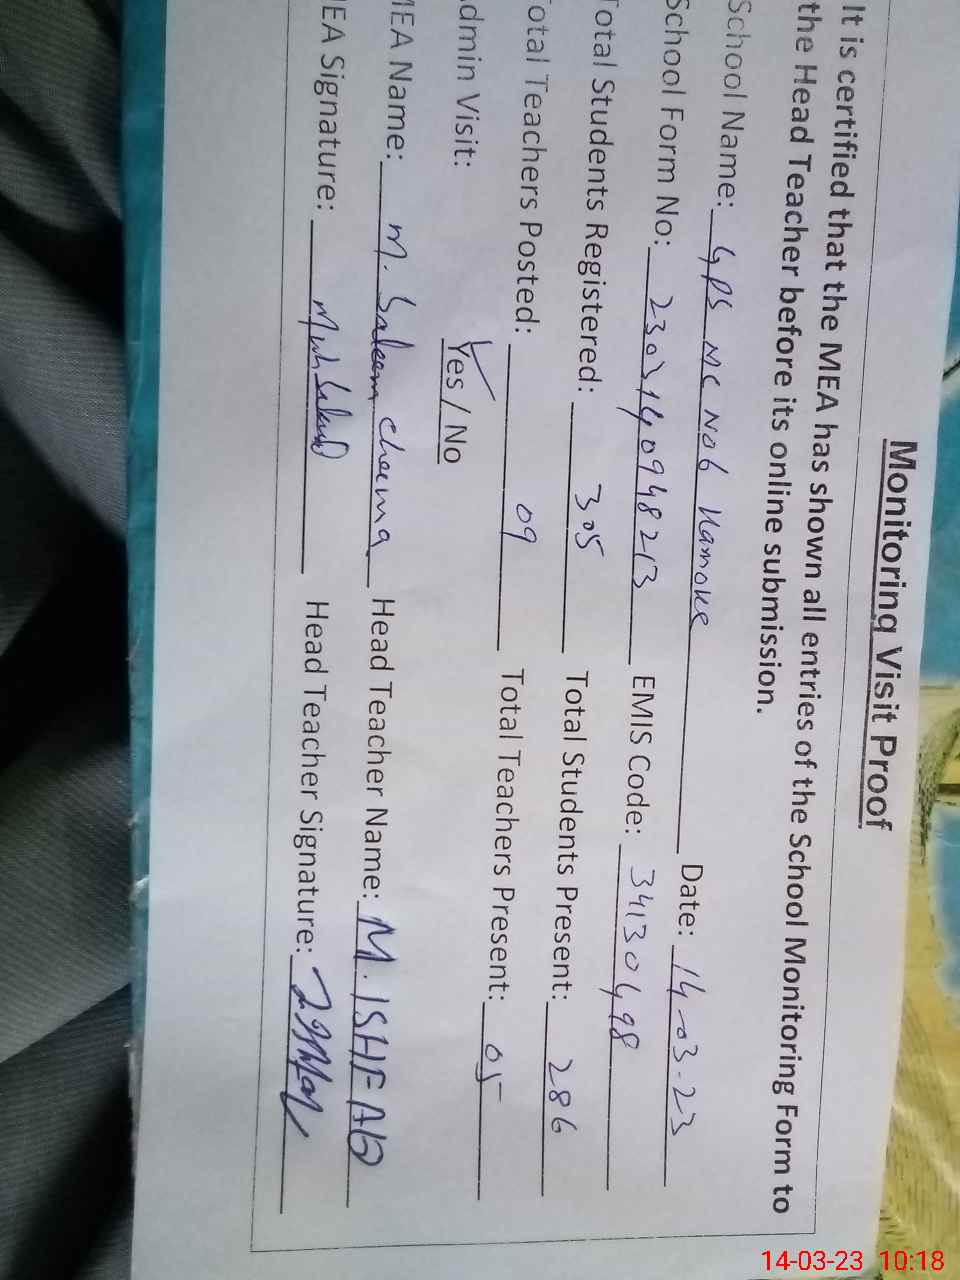 Monitoring Visit Proof
It is certified that the MEA has shown all entries of the School Monitoring Form to
the Head Teacher before its online submission.
School Name: GPS MC No 6 Kamoke Date: 14-03-23
School Form No: 2303140948213 EMIS Code: 34130498
Total Students Registered: 305 Total Students Present: 286
Total Teachers Posted: 09 Total Teachers Present: 05
Admin Visit: Yes / No
MEA Name: M. Saleem Cheema Head Teacher Name: M. ISHFAQ
MEA Signature: Head Teacher Signature:
14-03-23 10:18